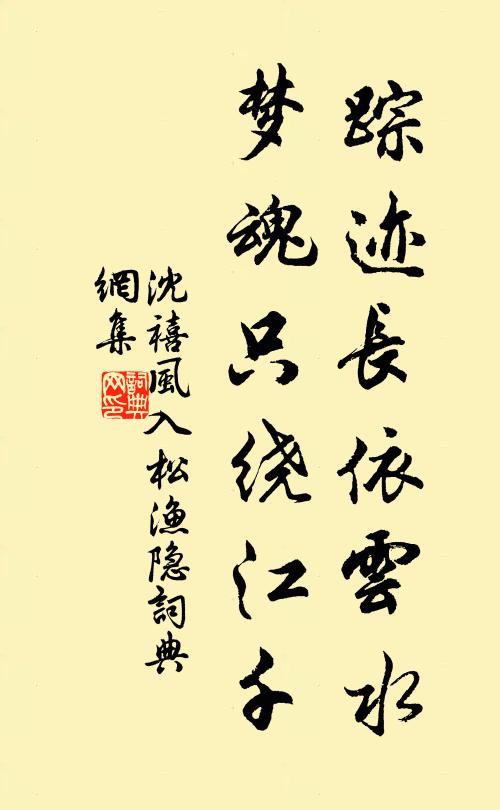 踪迹長依雲水
梦魂只绕江千
沈禧風入松漁隐詞典
網集
詞典
网印